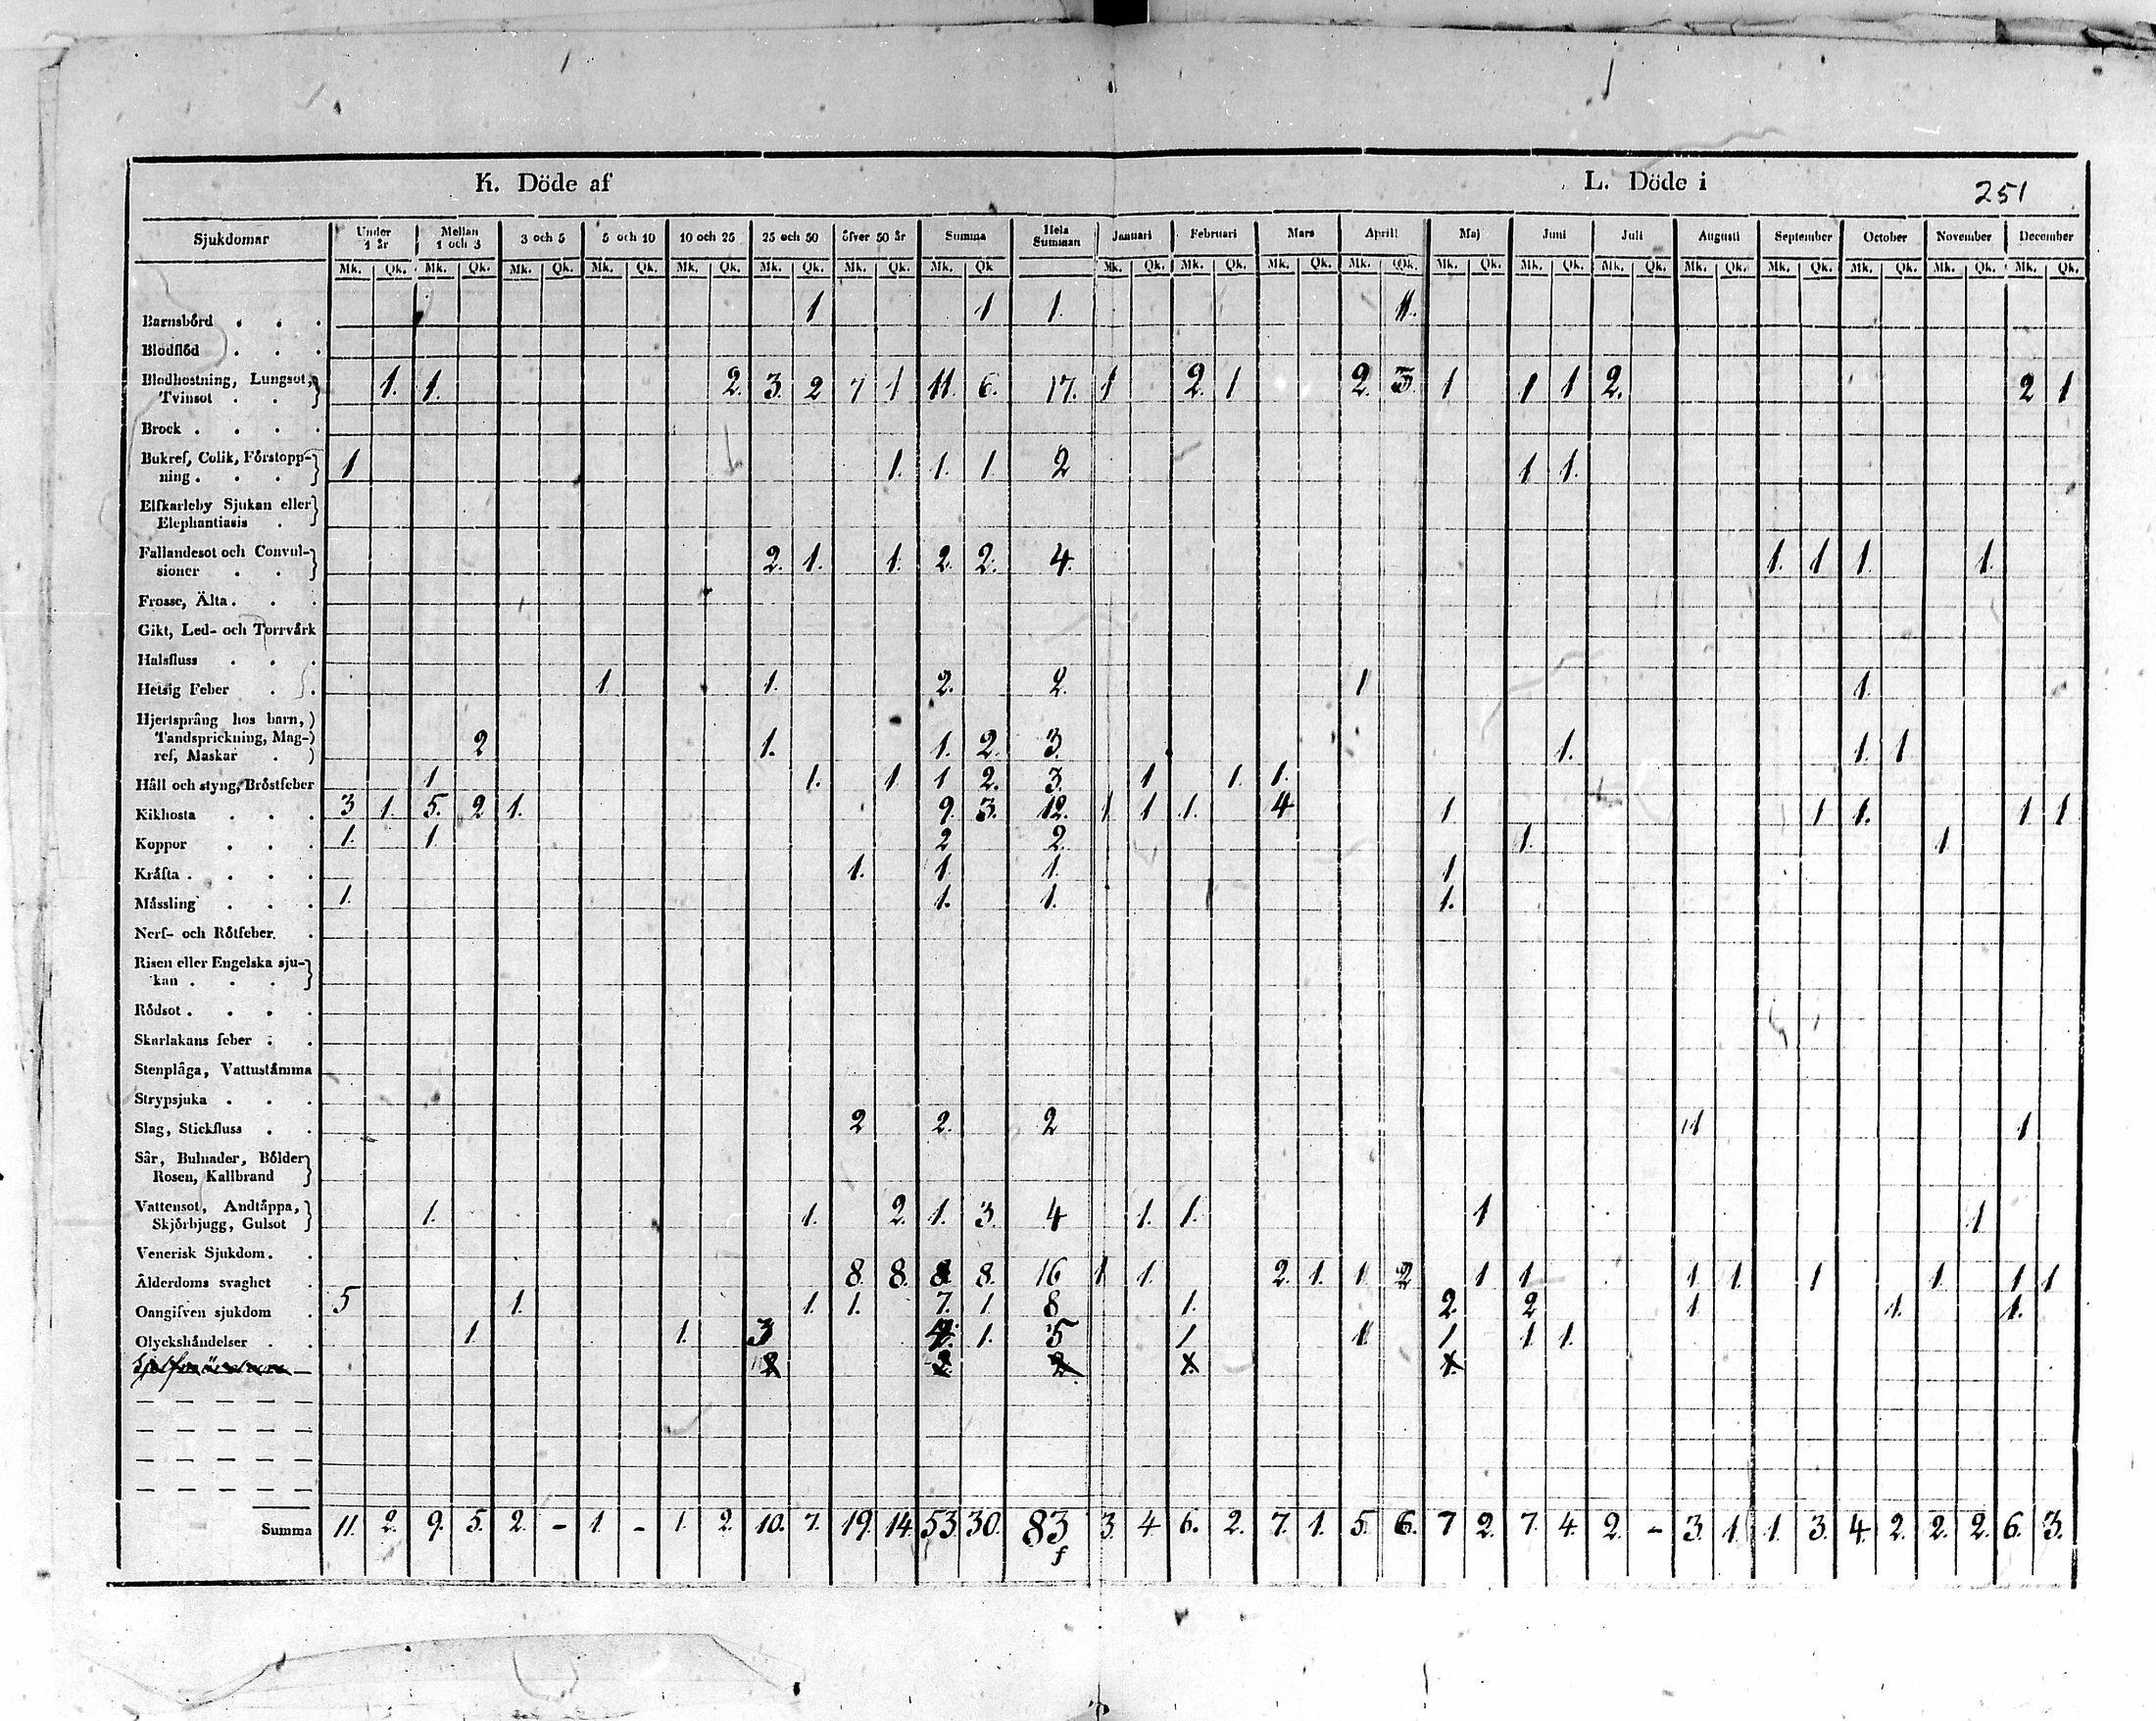 K. Döde af L. Döde i 251
Sjukdomar Under 1 år Mellan 1 och 3 3 och 5 5 och 10 10 och 25 25 och 50 öfver 50 år Summa Hela Summan Januari Februari Mars April Maj Juni Juli Augusti September October November December
Mk. Qk. Mk. Qk. Mk. Qk. Mk. Qk. Mk. Qk. Mk. Qk. Mk. Qk. Mk. Qk Mk. Qk. Mk. Qk. Mk. Qk. Mk. Qk. Mk. Qk. Mk. Qk. Mk. Qk. Mk. Qk. Mk. Qk. Mk. Qk. Mk. Qk. Mk. Qk.
Barnsbörd . . . 1 1 1.
Blodflöd . . .
Blodhostning, Lungsot,
Tvinsot . . 1. 1. 2. 3. 2 7 1 11. 6. 17. 1 2. 1 2. 3. 1 1 1 2. 2 1
Brock . . . .
Bukref, Colik, Förstopp-
ning . . . 1 1. 1. 1. 2 1 1.
Elfkarleby Sjukan eller
Elephantiasis .
Fallandesot och Convul-
sioner . . 2. 1. 1. 2. 2. 4. 1. 1 1. 1.
Frosse, Älta . . .
Gikt, Led- och Torrvärk
Halsfluss . . .
Hetsig Feber . . 1 1. 2. 2. 1 1.
Hjertsprång hos barn,
Tandsprickning, Mag-
ref, Maskar . 2 1. 1. 2. 3. 1. 1. 1
Håll och styng, Bröstfeber 1 1. 1 1 2. 3. 1 1. 1.
Kikhosta . . . 3 1. 5. 2 1. 9. 3. 12. 1 1 1. 4 1 1 1. 1 1
Koppor . . . 1. 1. 2 2. 1. 1
Kräfta . . . . 1. 1. 1. 1
Mässling . . . 1. 1. 1. 1.
Nerf- och Rötfeber. .
Risen eller Engelska sju-
kan . . .
Rödsot . . . .
Skarlakans feber . .
Stenplåga, Vattustämma
Strypsjuka . . .
Slag, Stickfluss . . 2 2. 2 1 1
Sår, Bulnader, Bölder
Rosen, Kallbrand
Vattensot, Andtäppa,
Skjörbjugg, Gulsot 1. 1. 2. 1. 3. 4 1. 1. 1 1
Venerisk Sjukdom . .
Ålderdoms svaghet . 8. 8. 8. 8. 16 1 1. 2. 1. 1 2 1 1 1. 1. 1 1. 1 1
Oangifven sjukdom . 5 1. 1. 1. 7. 1. 8 1. 2. 2 1 1. 1.
Olyckshändelser . . 1. 1. 3 1. 5 1. 1. 1. 1 1.
Summa 11. 2. 9. 5. 2. - 1. - 1. 2. 10. 7. 19. 14. 53. 30. 83 3. 4 6. 2. 7. 1. 5. 6. 7 2. 7. 4. 2. - 3. 1. 1. 3. 4. 2. 2. 2. 6. 3.
f